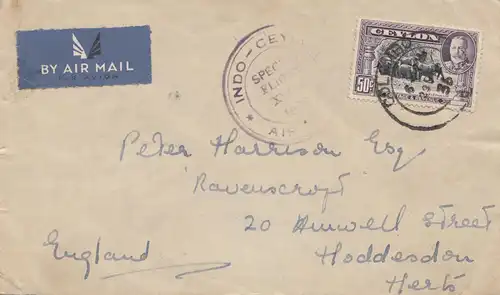 BY AIR MAIL
PAR AVION
INDO-CEY
SPEC
FLIG
X
AIR
CEYLON
50c
COLOMBO
Peter Harrison Esq
Ravenscroft
20 Amwell Street
Hoddesdon
Herts
England